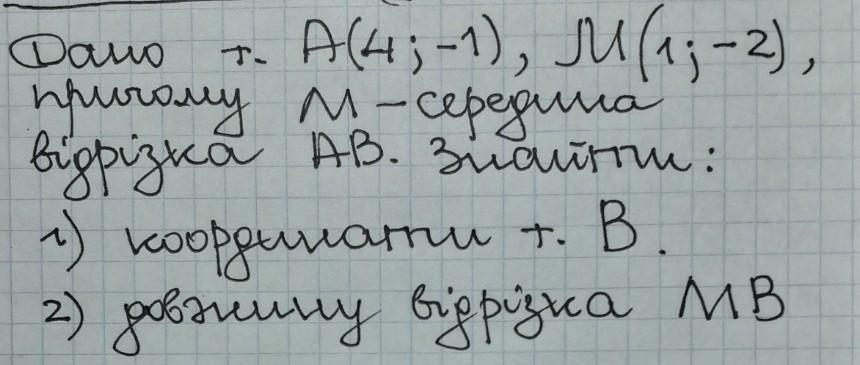 Дано т. A(4;-1), M(1;-2),
причому M – середина
відрізка AB. Знайти:
1) координати т. B.
2) довжину відрізка MB